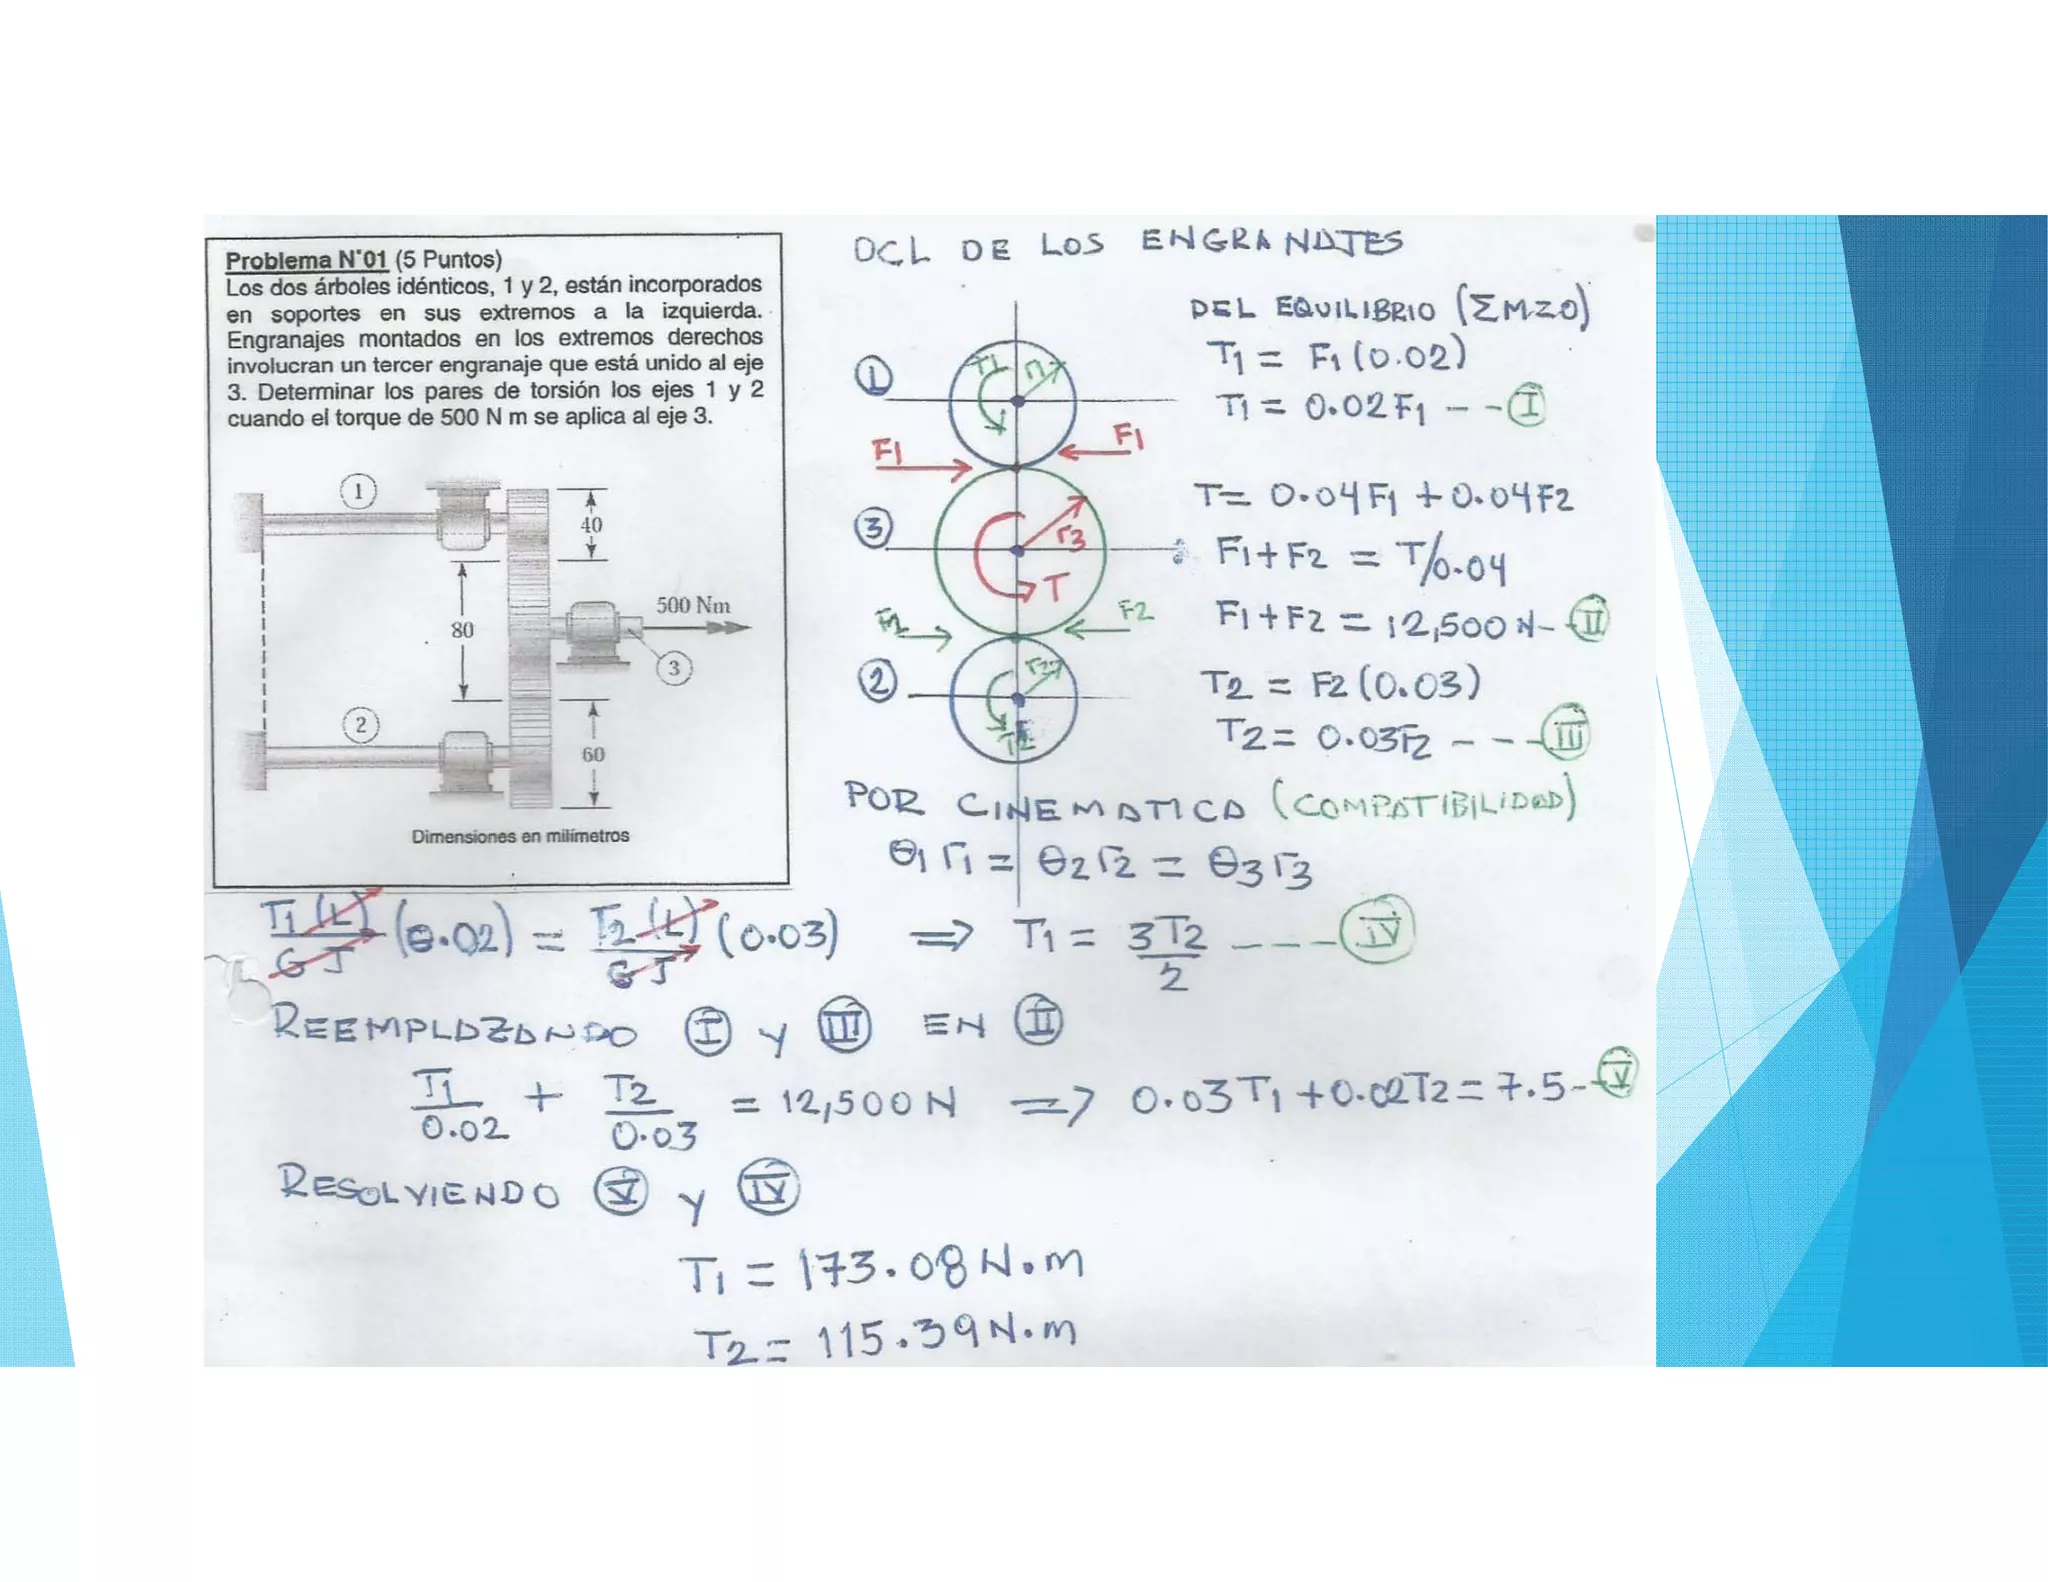 Problema N°01 (5 Puntos)
Los dos árboles idénticos, 1 y 2, están incorporados
en soportes en sus extremos a la izquierda.
Engranajes montados en los extremos derechos
involucran un tercer engranaje que está unido al eje
3. Determinar los pares de torsión los ejes 1 y 2
cuando el torque de 500 N m se aplica al eje 3.
1
40
80
500 Nm
3
2
60
Dimensiones en milímetros
DCL DE LOS ENGRANAJES
1
T1
r1
F1
F1
3
r3
T
F2
F2
2
r2
T2
DEL EQUILIBRIO (ΣM=0)
T1 = F1 (0.02)
T1 = 0.02F1 - - I
T = 0.04F1 + 0.04F2
F1+F2 = T/0.04
F1+F2 = 12,500 N - II
T2 = F2 (0.03)
T2 = 0.03F2 - - - III
POR CINEMATICA (COMPATIBILIDAD)
θ1 r1 = θ2 r2 = θ3 r3
T1 (L)/GJ (0.02) = T2 (L)/GJ (0.03) ⇒ T1 = 3T2/2 - - - IV
REEMPLAZANDO I Y III EN II
T1/0.02 + T2/0.03 = 12,500 N ⇒ 0.03T1 + 0.02T2 = 7.5 - V
RESOLVIENDO V Y IV
T1 = 173.08 N.m
T2 = 115.39 N.m